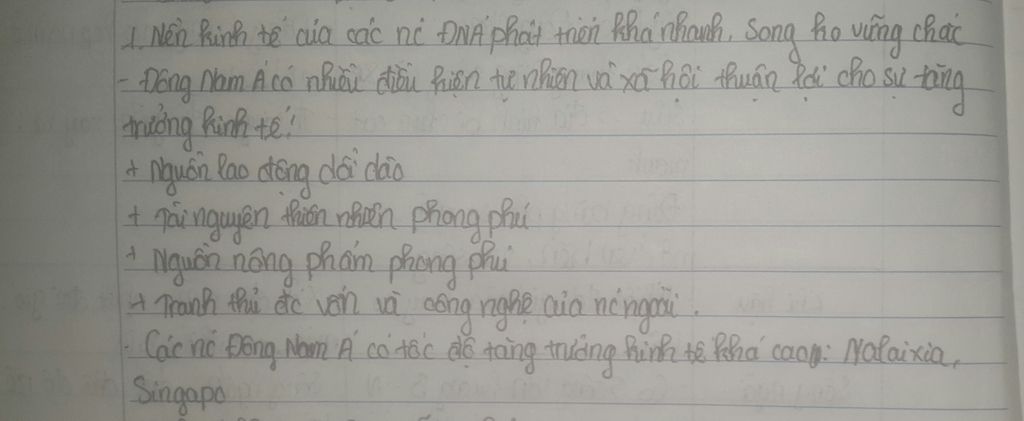 1. Nền kinh tế của các nc ĐNÁ phát triển khá nhanh, song ko vững chắc
- Đông Nam Á có nhiều điều kiện tự nhiên và xã hội thuận lợi cho sự tăng
trưởng kinh tế:
+ Nguồn lao động dồi dào
+ Tài nguyên thiên nhiên phong phú
+ Nguồn nông phẩm phong phú
+ Tranh thủ đc vốn và công nghệ của nc ngoài.
- Các nc Đông Nam Á có tốc độ tăng trưởng kinh tế khá cao: Malaixia,
Singapo